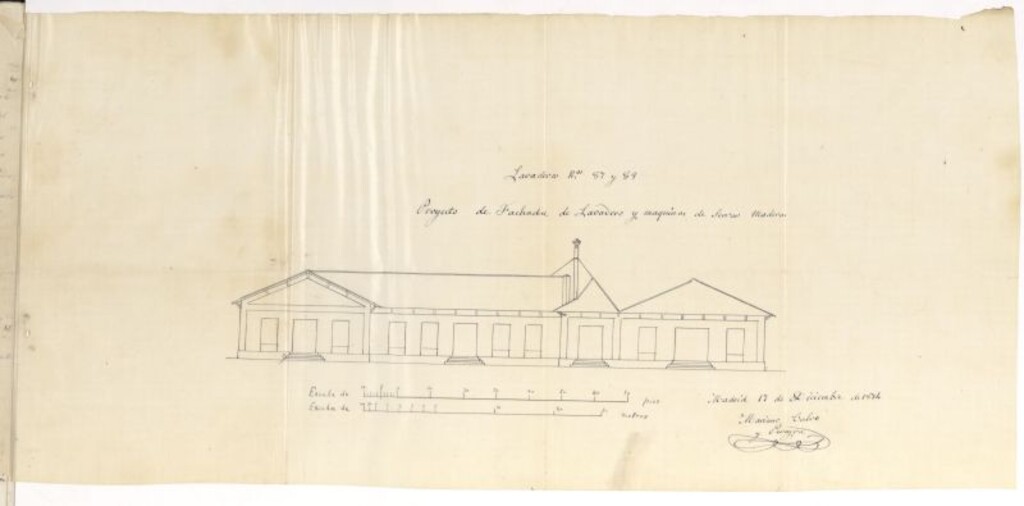 Lavaderos N.os 87 y 89
Proyecto de Fachada de Lavaderos y maquinas de Serrar Maderas
Escala de pies
Escala de metros
Madrid 17 de Diciembre de 1874
Mariano Calvo
y Pereyra